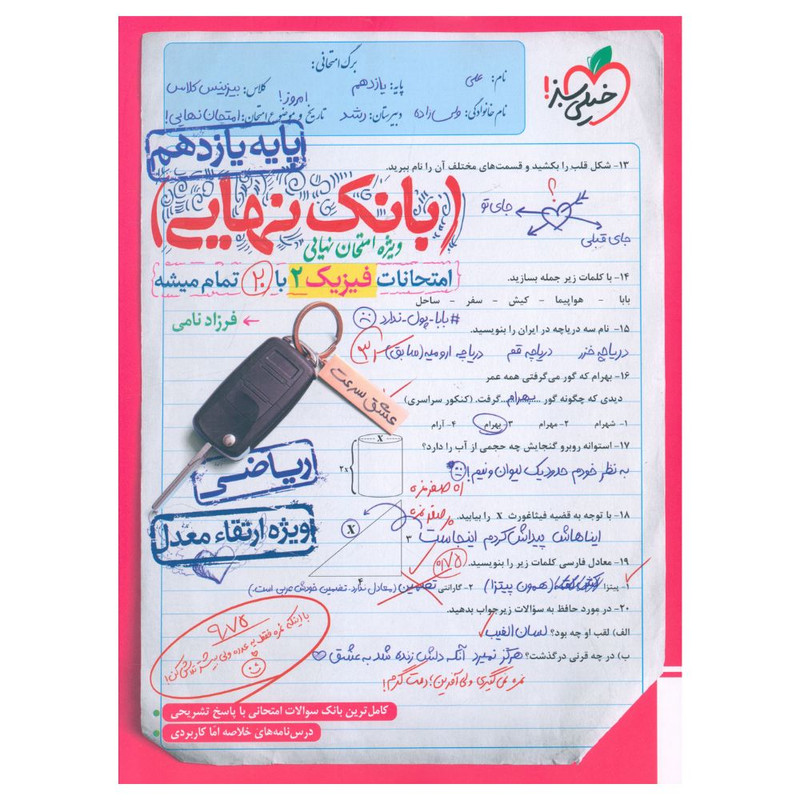 خیلی سبز!
برگ امتحانی:
نام: علی
پایه: یازدهم
کلاس: بیزینس کلاس
نام خانوادگی: ولی‌زاده
دبیرستان: رشد
تاریخ و موضوع امتحان: امتحان نهایی!
امروز!
پایه یازدهم
(بانک نهایی)
ویژه امتحان نهایی
امتحانات فیزیک ۲ با ۲۰ تمام میشه
فرزاد نامی
عشق سرعت
ریاضی
ویژه ارتقاء معدل
۱۳- شکل قلب را بکشید و قسمت‌های مختلف آن را نام ببرید.
؟
جای تو
جای قبلی
۱۴- با کلمات زیر جمله بسازید.
بابا - هواپیما - کیش - سفر - ساحل
#بابا-پول-ندارد
۱۵- نام سه دریاچه در ایران را بنویسید.
دریاچه خزر دریاچه قم دریاچه ارومیه (سابق)
۱۶- بهرام که گور می‌گرفتی همه عمر
دیدی که چگونه گور ...بهرام... گرفت. (کنکور سراسری)
۱- شهرام ۲- مهرام ۳- بهرام ۴- آرام
۱۷- استوانه روبرو گنجایش چه حجمی از آب را دارد؟
X
۲x
به نظر خودم حدود یک لیوان و نیم!
۱۸- با توجه به قضیه فیثاغورث X را بیابید.
X
۳
۴
ایناهاش پیداش کردم اینجاست
۰/۷۵
۱۹- معادل فارسی کلمات زیر را بنویسید.
۱- پیتزا (همون پیتزا) ۲- گارانتی تضمین (معادل ندارد. تضمین خودش عربی است.)
۲۰- در مورد حافظ به سؤالات زیر جواب بدهید.
الف) لقب او چه بود؟ لسان الغیب
ب) در چه قرنی درگذشت؟ هرگز نمیرد آنکه دلش زنده شد به عشق
نمره نمی‌گیری ولی آفرین؛ دمت گرم!
۹/۷۵
کامل‌ترین بانک سوالات امتحانی با پاسخ تشریحی
درس‌نامه‌های خلاصه اما کاربردی